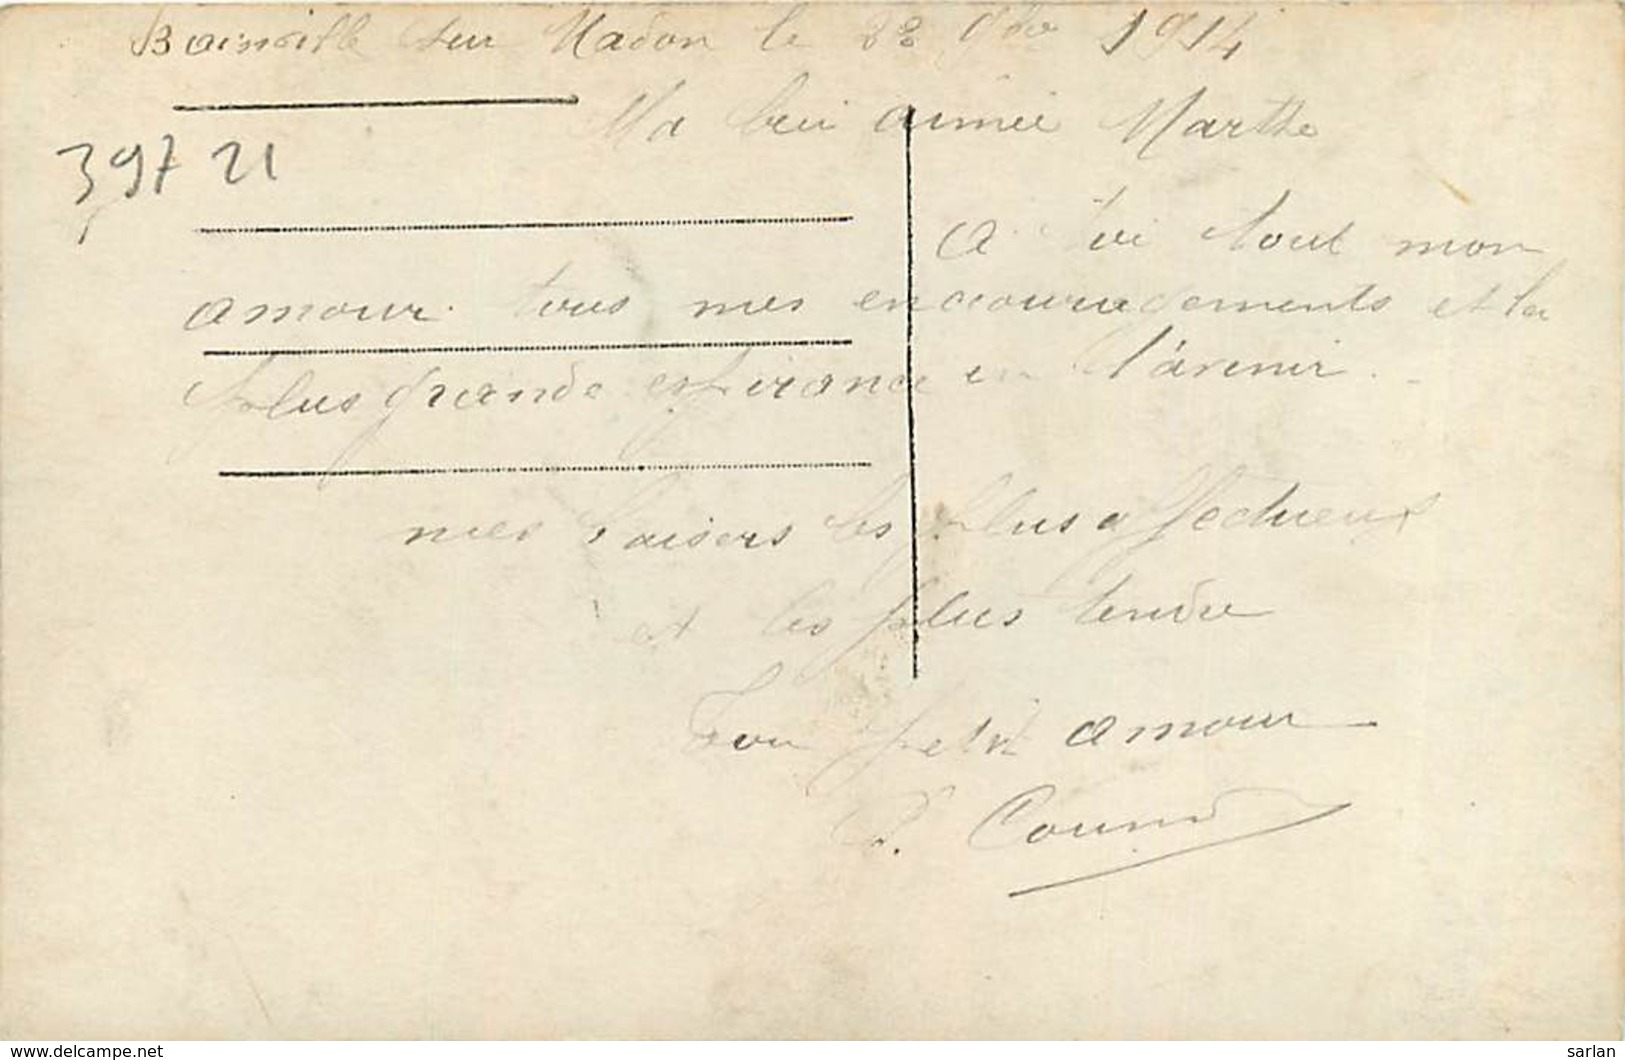 Bainville sur Madon le 9bre 1914
Ma bien aimée Marthe
39721
A toi tout mon
amour. tous mes encouragements et la
plus grande espérance en l'avenir.
mes baisers les plus affectueux
et les plus tendre
Ton petit amour
P.
www.delcampe.net
sarlan